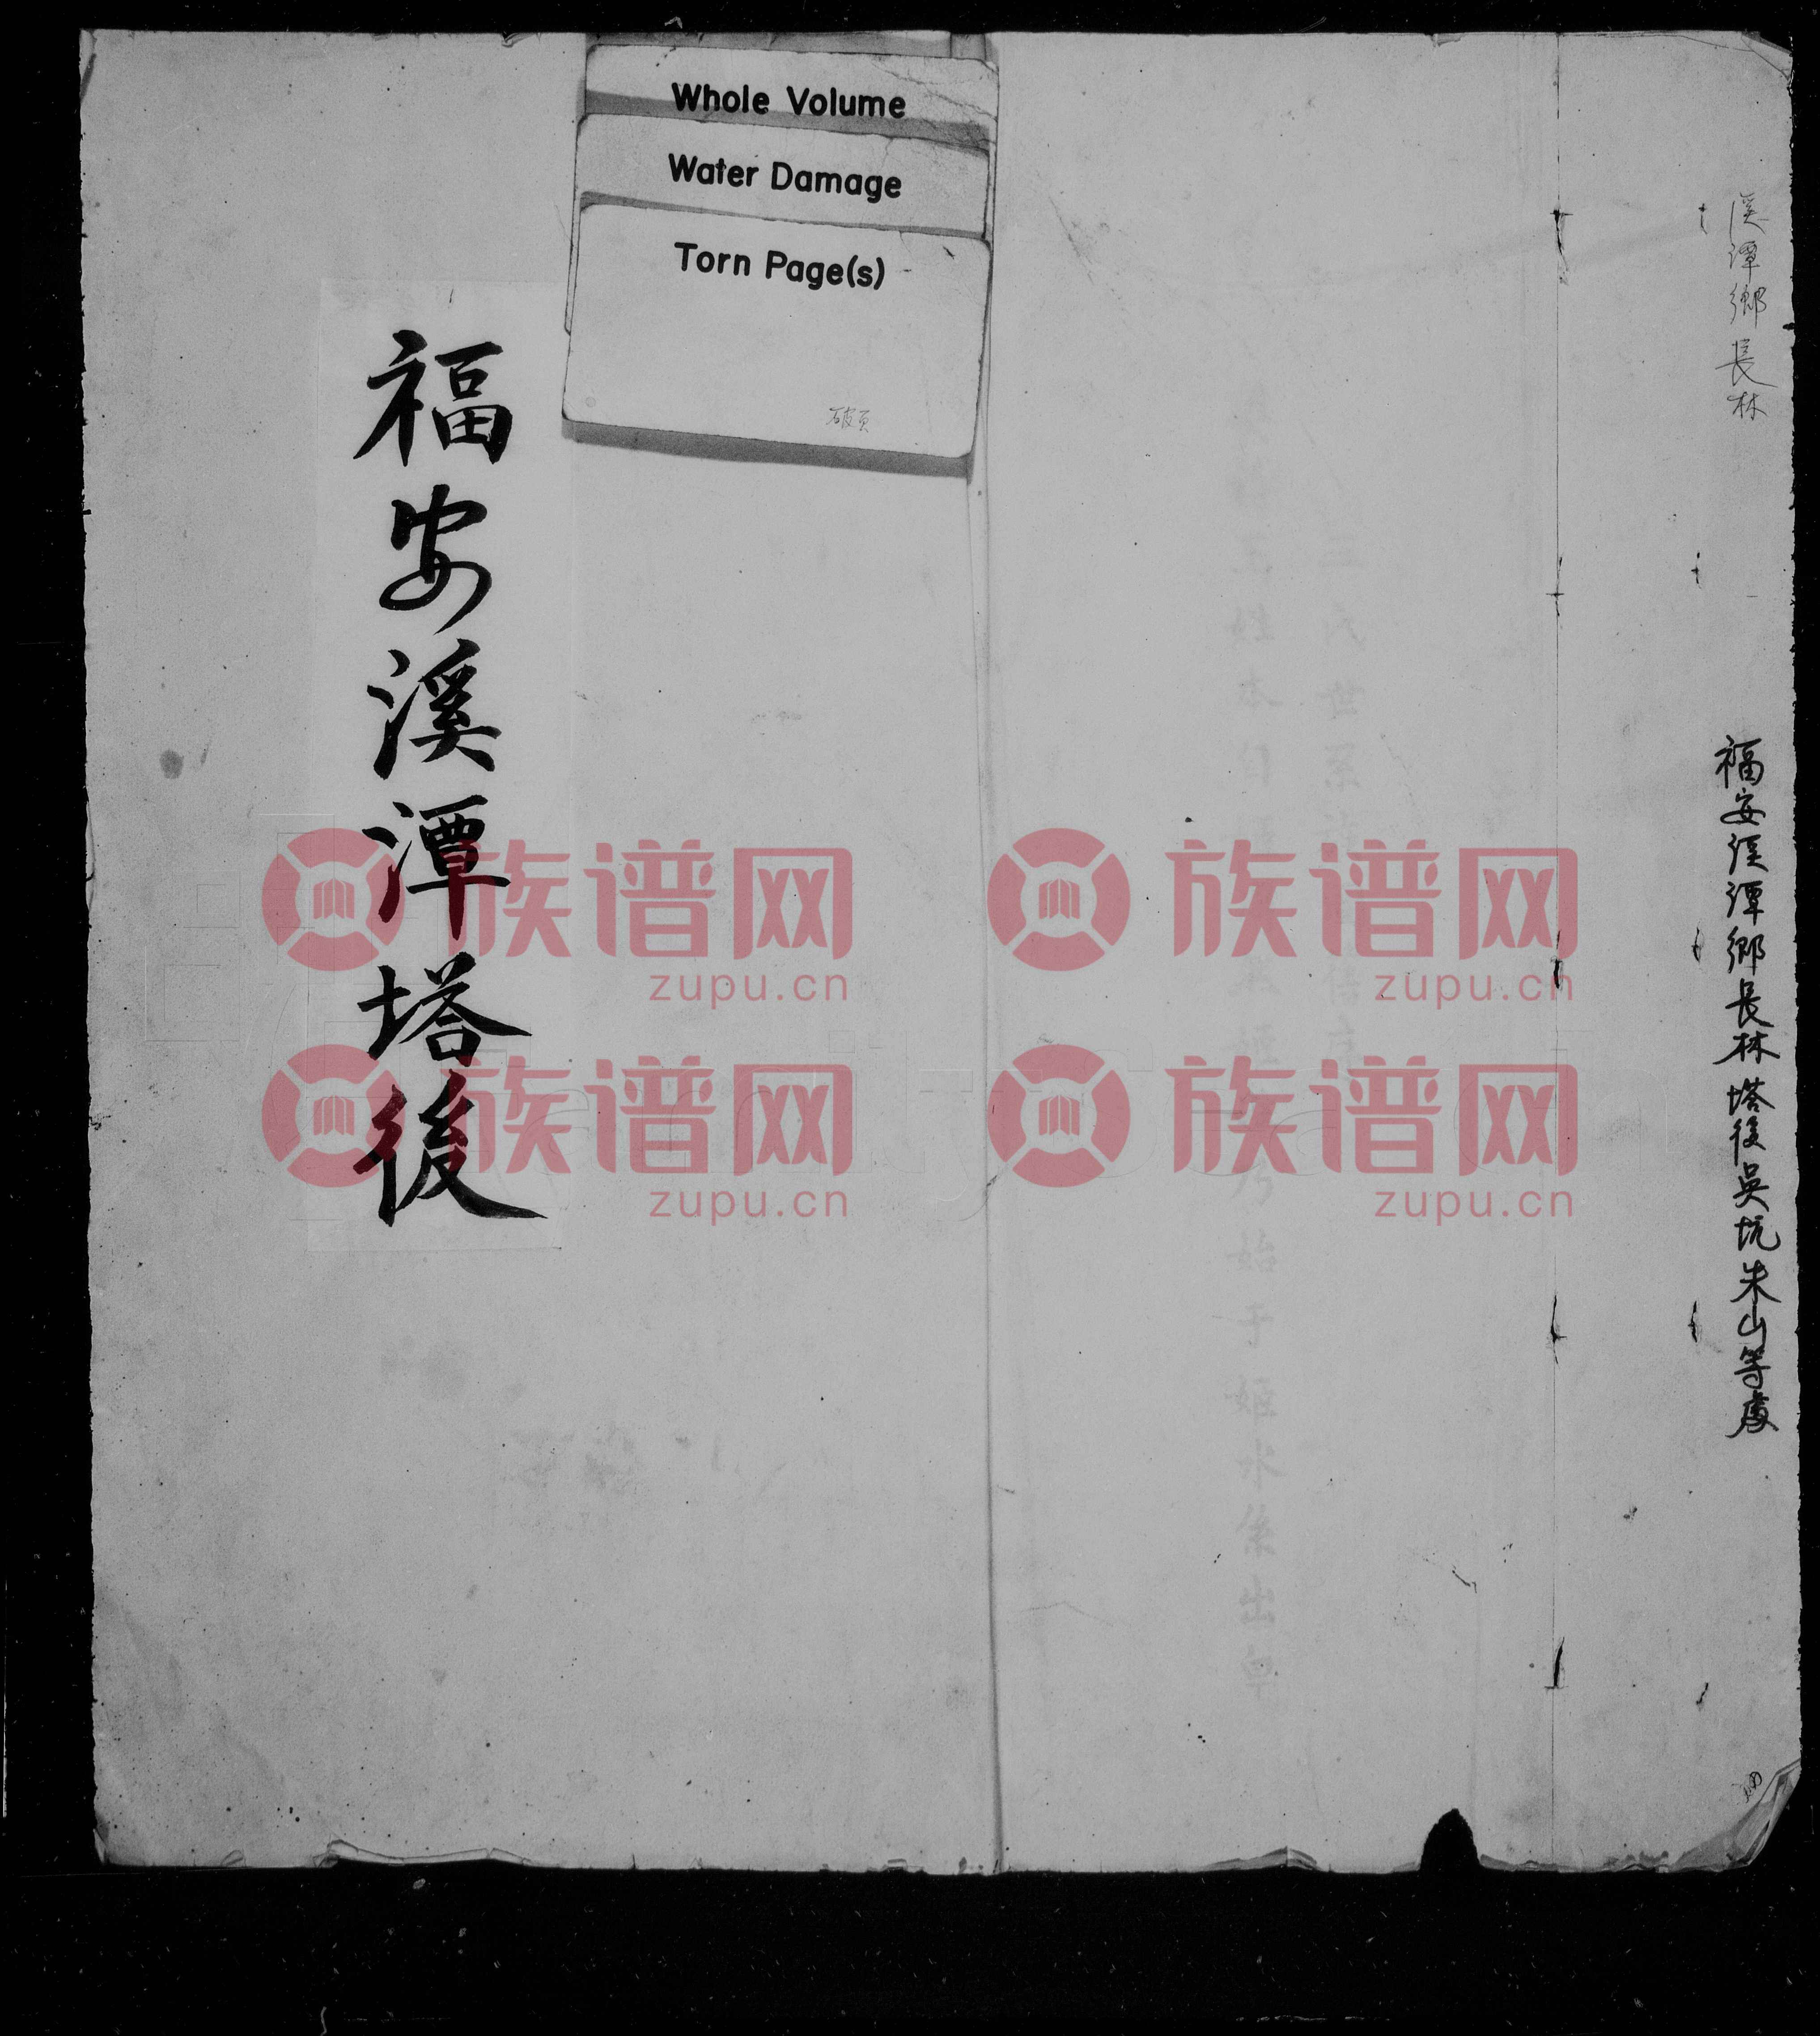 溪潭鄉長林
福安溪潭鄉長林塔後吳坑朱山等處
Whole Volume
Water Damage
Torn Page(s)
破页
福安溪潭塔後
族谱网
zupu.cn
族谱网
zupu.cn
族谱网
zupu.cn
族谱网
zupu.cn